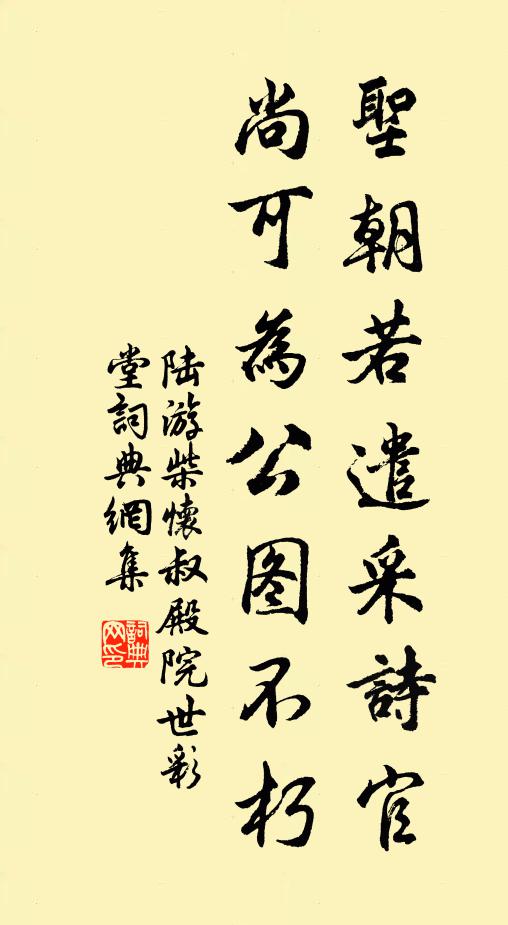 聖朝若遣采詩官
尚可為公图不朽
陆游柴懷叔殿院世彩
堂詞典網集
詞典
网印